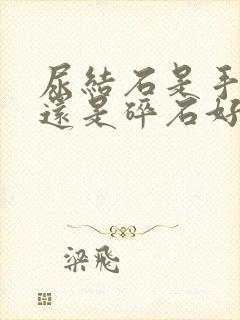 尿結石是手
還是碎石好
梁飛